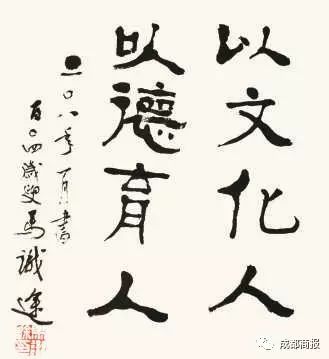 以文化人
以德育人
二〇八年書
百〇四歲叟馬識途
成都商报